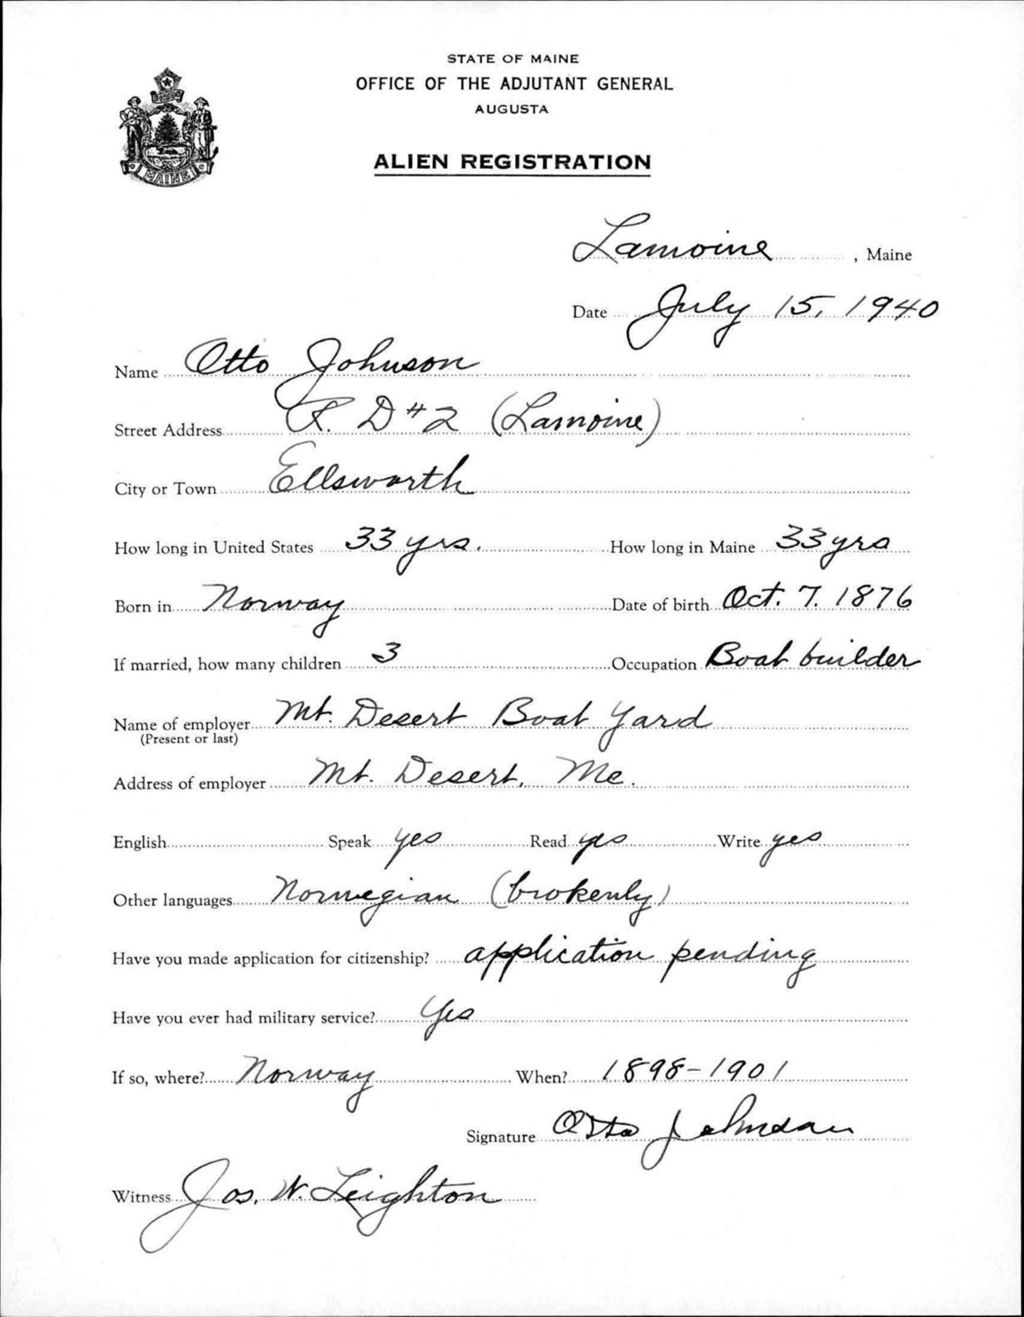 STATE OF MAINE
OFFICE OF THE ADJUTANT GENERAL
AUGUSTA
ALIEN REGISTRATION
MAINE
Lamoine, Maine
Date July 15, 1940
Name Otto Johnson
Street Address R. D #2 (Lamoine)
City or Town Ellsworth
How long in United States 33 yrs. How long in Maine 33 yrs
Born in Norway Date of birth Oct. 7. 1876
If married, how many children 3 Occupation Boat builder
Name of employer Mt. Desert Boat Yard
(Present or last)
Address of employer Mt. Desert, Me.
English Speak yes Read yes Write yes
Other languages Norwegian (brokenly)
Have you made application for citizenship? application pending
Have you ever had military service? Yes
If so, where? Norway When? 1898-1901
Signature Otto Johnson
Witness Jos. W. Leighton